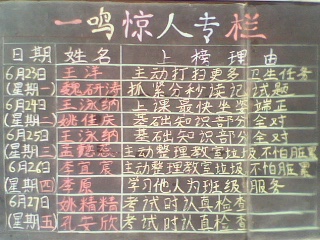 一鸣惊人专栏
日期 姓名 上榜理由
6月23日 王洋 主动打扫更多卫生任务
(星期一) 魏研涛 抓紧分秒读记试题
6月24日 王泳纳 上课最快坐端正
(星期二) 姚佳庆 基础知识部分全对
6月25日 王泳纳 基础知识部分全对
(星期三) 孟懿蕊 主动整理教室垃圾不怕脏累
6月26日 李宜宸 主动整理教室垃圾不怕脏累
(星期四) 李原 学习他人为班级服务
6月27日 姚精精 考试时认真检查
(星期五) 孔安欣 考试时认真检查